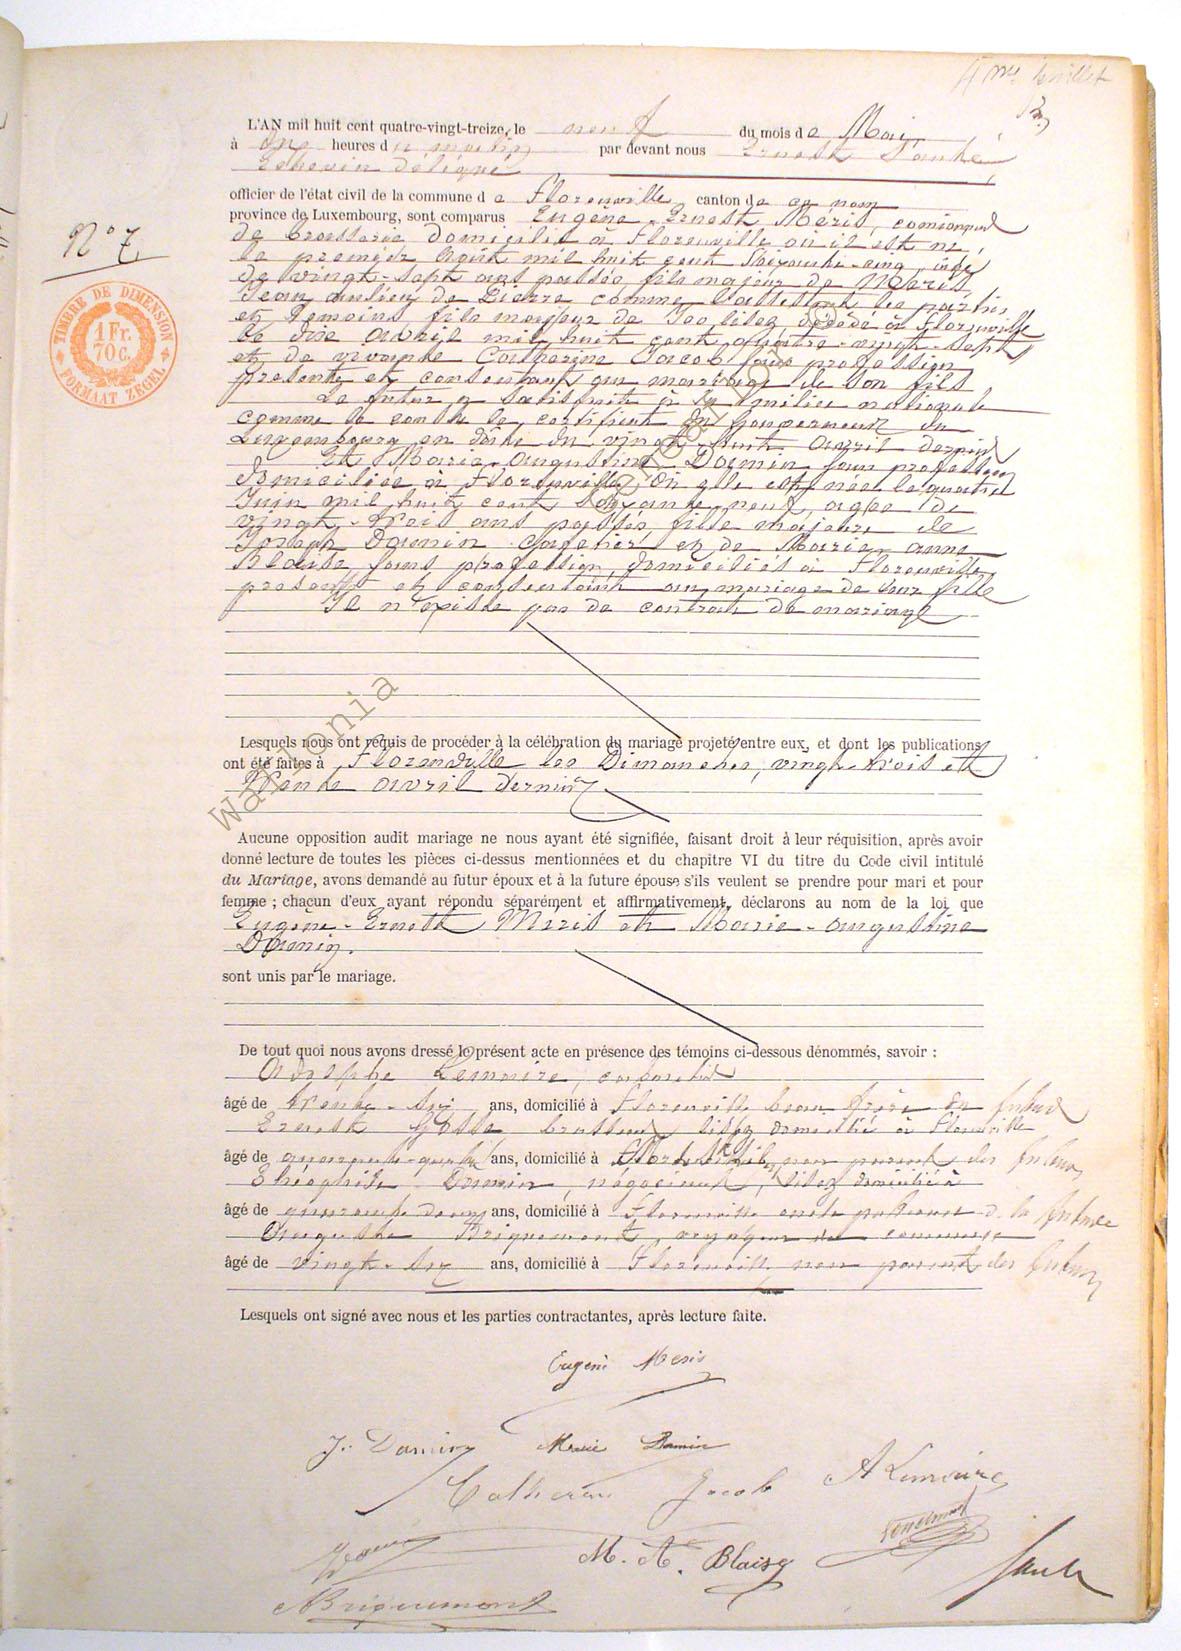 4me feuillet
N° 7
TIMBRE DE DIMENSION
1 Fr.
70 C.
FORMAAT ZEGEL
L'AN mil huit cent quatre-vingt-treize, le neuf du mois de Mai
à onze heures du matin par devant nous Ernest
Echevin délégué
officier de l'état civil de la commune de Florenville canton de ce nom
province de Luxembourg, sont comparus Eugène-Ernest Méris,
de brasserie domicilié à Florenville où il est né,
le premier Août mil huit cent soixante-cinq, âgé
de vingt-sept ans passés, fils majeur de Méris
Jean au lieu de Pierre comme l'attestent les parties
et témoins fils majeur de décédé à Florenville
le dix avril mil huit cent quatre-vingt-sept
et de vivante Catherine Jacob sans profession
présente et consentant au mariage de son fils
Le futur a satisfait à la milice nationale
comme le constate le certificat du Gouverneur du
Luxembourg en date du vingt-huit avril dernier
Et Marie-Augustine Damin sans profession
domiciliée à Florenville, où elle est née le quatre
Juin mil huit cent soixante neuf, agée de
vingt-trois ans passés, fille majeure de
Joseph Damin et de Marie-Anne
Blaise, sans profession, domiciliés à Florenville
présents et consentant au mariage de leur fille
Il n'existe pas de contrat de mariage
Lesquels nous ont requis de procéder à la célébration du mariage projeté entre eux, et dont les publications
ont été faites à Florenville les Dimanches, vingt-trois et
trente avril dernier
Aucune opposition audit mariage ne nous ayant été signifiée, faisant droit à leur réquisition, après avoir
donné lecture de toutes les pièces ci-dessus mentionnées et du chapitre VI du titre du Code civil intitulé
du Mariage, avons demandé au futur époux et à la future épouse s'ils veulent se prendre pour mari et pour
femme ; chacun d'eux ayant répondu séparément et affirmativement, déclarons au nom de la loi que
Eugène-Ernest Méris et Marie-Augustine
Damin.
sont unis par le mariage.
De tout quoi nous avons dressé le présent acte en présence des témoins ci-dessous dénommés, savoir :
Adolphe Lemaire,
âgé de trente-six ans, domicilié à Florenville beau frère du futur
Ernest brasseur, lisez domicilié à Florenville
âgé de quarante-quatre ans, domicilié à non parent des futurs
Théophile Damin, négociant, lisez domicilié à
âgé de quarante deux ans, domicilié à Florenville oncle paternel de la future
Auguste Briquemont, voyageur de commerce
âgé de vingt-six ans, domicilié à Florenville, non parent des futurs
Lesquels ont signé avec nous et les parties contractantes, après lecture faite.
Eugène Meris
J. Damin Marie Damin
Catherine Jacob A Lemaire
M. A. Blaise
A Briquemont
Wallonia